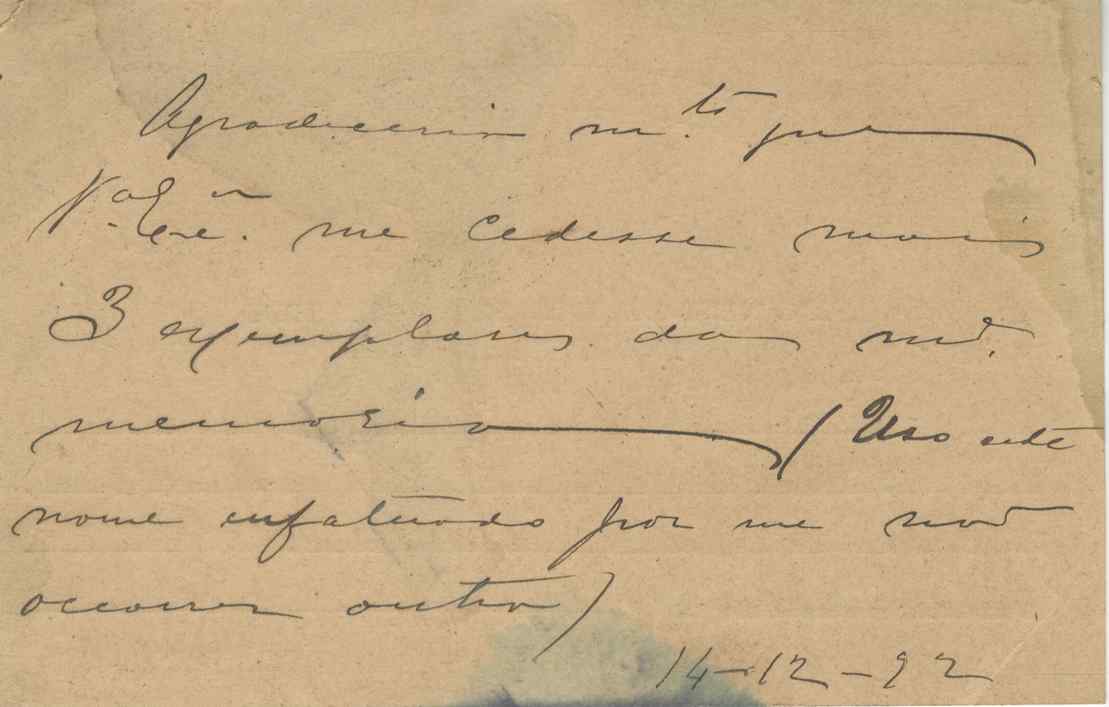 Agradeceria m.to que
V.a Exc.a me cedesse mais
3 exemplares da m.a
memoria (Uso este
nome enfatuado por me não
occorrer outro)
14-12-92